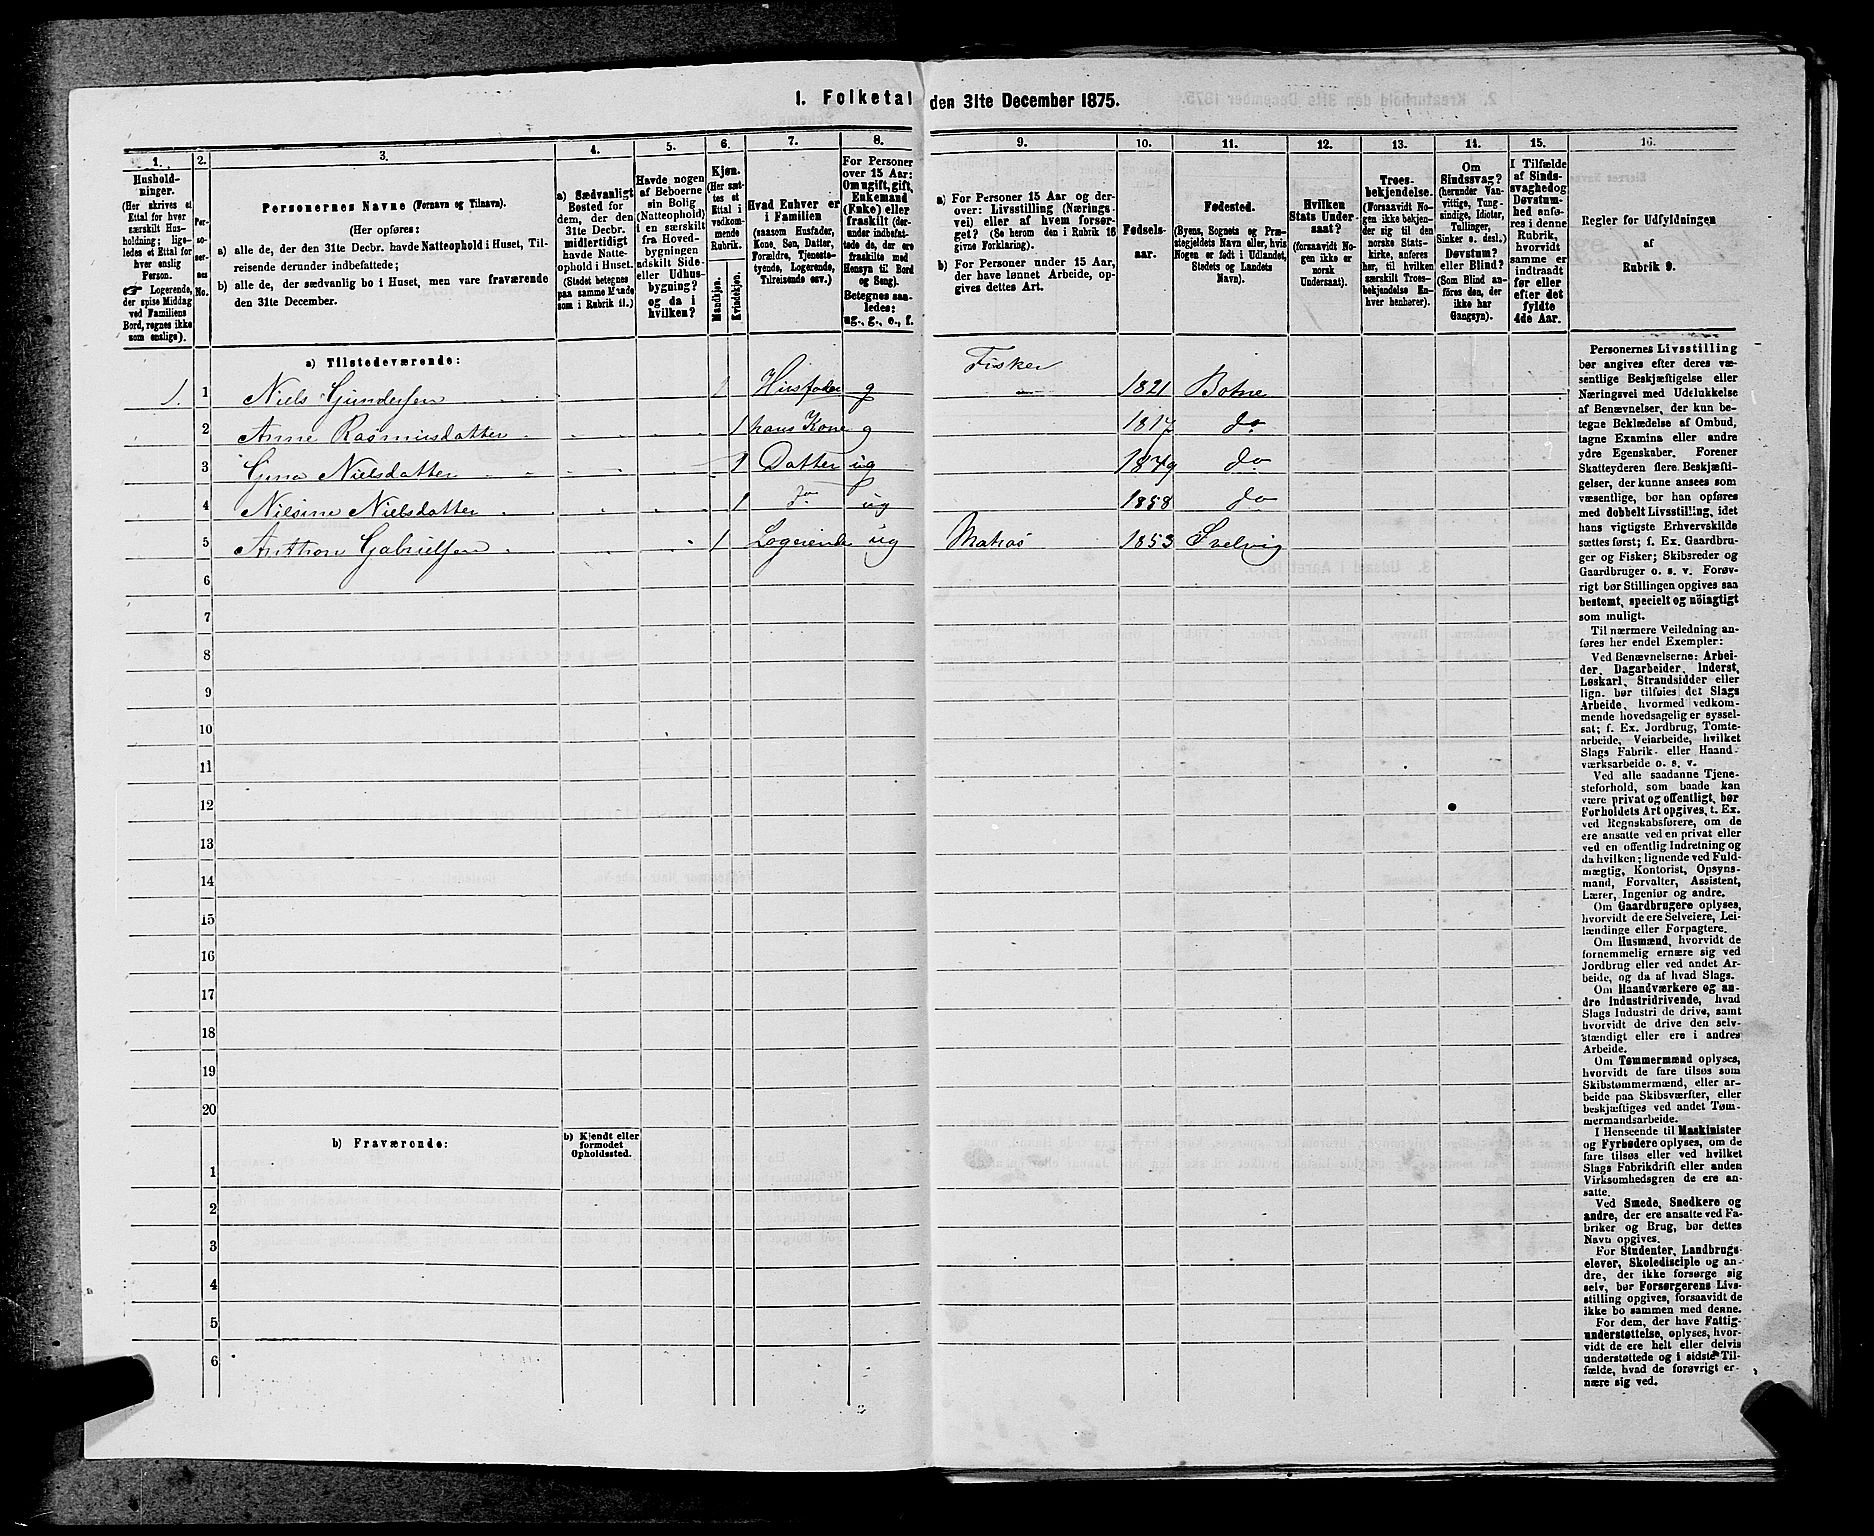 1. Folketal den 31te December 1875.
1. 2. 3. 4. 5. 6. 7. 8. 9. 10. 11. 12. 13. 14. 15. 16.
Hushold-
ninger.
(Her skrives et
Ettal for hver
særskilt Hus-
holdning; lige-
ledes et Ettal for
hver enslig
Person.
☛ Logerende,
der spise Middag
ved Familiens
Bord, regnes ikke
som enslige).
Per-
so-
ner-
nes
No.
Personernes Navne (Fornavn og Tilnavn).
(Her opføres:
a) alle de, der den 31te Decbr. havde Natteophold i Huset, Til-
reisende derunder indbefattede;
b) alle de, der sædvanlig bo i Huset, men vare fraværende
den 31te December.
a) Sædvanligt
Bosted for
dem, der den
31te Decbr.
midlertidigt
havde Natte-
ophold i Huset.
(Stedet betegnes
paa samme Maade
som i Rubrik 11.)
Havde nogen
af Beboerne
sin Bolig
(Natteophold)
i en særskilt
fra Hoved-
bygningen
adskilt Side-
eller Udhus-
bygning?
og da i
hvilken?
Kjøn.
(Her sæt-
tes et
Ettal i
vedkom-
mende
Rubrik.
Mandkjøn.
Kvindekjøn.
Hvad Enhver er
i Familien
(saasom Husfader,
Kone, Søn, Datter,
Forældre, Tjeneste-
tyende, Logerende,
Tilreisende osv.)
For Personer
over 15 Aar:
Om ugift, gift,
Enkemand
(Enke) eller
fraskilt (der-
under indbefat-
tede de, der ere
fraskilte med
Hensyn til Bord
og Seng).
Betegnes saa-
ledes:
ug., g., e., f.
a) For Personer 15 Aar og der-
over: Livsstilling (Nærings-
vei) eller af hvem forsør-
get? (Se herom den i Rubrik 16
givne Forklaring).
b) For Personer under 15 Aar,
der have lønnet Arbeide, op-
gives dettes Art.
Fødsels-
aar.
Fødested.
(Byens, Sognets og Præ-
stegjeldets Navn eller, hvis
Nogen er født i Udlandet,
Stedets og Landets
Navn).
Hvilken
Stats Under-
saat?
(forsaavidt No-
gen ikke er
norsk
Undersaat).
Troes-
bekjendelse.
(Forsaavidt No-
gen ikke bekjen-
der sig til den
norske Stats-
kirke, anføres
her, til hvilken
særskilt Troes-
bekjendelse En-
hver henhører).
Om
Sindssvag?
(herunder Van-
vittige, Tung-
sindige, Idioter,
Tullinger,
Sinker o. desl.)
Døvstum?
eller Blind?
(Som Blind an-
føres den, der
ikke har
Gangsyn).
I Tilfælde
af Sinds-
svaghed og
Døvstum-
hed enfø-
res i denne
Rubrik,
hvorvidt
samme er
indtraadt
før eller
efter det
fyldte
4de Aar.
Regler for Udfyldningen
af
Rubrik 9.
a) Tilstedeværende:
Fisker
1. 1 Niels Gundersen 1 Husfader g 1821 Botne
2 Anne Rasmusdatter 1 hans Kone g 1817 do
3 Gina Nielsdatter 1 Datter ug 1849 do
4 Nilsine Nielsdatter 1 do ug 1858 do
5 Anthon Gabrielsen 1 Logerende ug Matros 1853 Svelvig
6
7
8
9
10
11
12
13
14
15
16
17
18
19
20
b) Fraværende:
b) Kjendt eller
formodet
Opholdssted.
1
2
3
4
5
6
Personernes Livsstilling
bør angives efter deres væ-
sentlige Beskjæftigelse eller
Næringsvei med Udelukkelse
af Benævnelser, der kun be-
tegne Beklædelse af Ombud,
tagne Examina eller andre
ydre Egenskaber. Forener
Skatteyderen flere Beskjæfti-
gelser, der kunne ansees som
væsentlige, bør han opføres
med dobbelt Livsstilling, idet
hans vigtigste Erhvervskilde
sættes først; f. Ex. Gaardbru-
ger og Fisker; Skibsreder og
Gaardbruger o. s. v. Forøv-
rigt bør Stillingen opgives saa
bestemt, specielt og nöiagtigt
som muligt.
Til nærmere Veiledning an-
føres her endel Exempler:
Ved Benævnelserne: Arbei-
der, Dagarbeider, Inderst,
Løskarl, Strandsidder eller
lign. bør tilføies det Slags
Arbeide, hvormed vedkom-
mende hovedsagelig er syssel-
sat; f. Ex. Jordbrug, Tomte-
arbeide, Veiarbeide, hvilket
Slags Fabrik- eller Haand-
værksarbeide o. s. v.
Ved alle saadanne Tjene-
steforhold, som baade kan
være privat og offentligt, bør
Forholdets Art opgives, t. Ex.
ved Regnskabsførere, om de
ere ansatte ved en privat eller
ved en offentlig Indretning og
da hvilken; lignende ved Fuld-
mægtig, Kontorist, Opsyns-
mand, Forvalter, Assistent,
Lærer, Ingeniør og andre.
Om Gaardbrugere oplyses,
hvorvidt de ere Selveiere, Lei-
lændinge eller Forpagtere.
Om Husmænd, hvorvidt de
fornemmelig ernære sig ved
Jordbrug eller ved andet Ar-
beide, og da af hvad Slags.
Om Haandværkere og an-
dre Industridrivende, hvad
Slags Industri de drive, samt
hvorvidt de drive den selv-
stændigt eller ere i andres
Arbeide.
Om Tømmermænd oplyses,
hvorvidt de fare tilsøs som
Skibstømmermænd, eller ar-
beide paa Skibsværfter, eller
beskjæftiges ved andet Tøm-
mermandsarbeide.
I Henseende til Maskinister
og Fyrbødere oplyses, om de
fare tilsøs eller ved hvilket
Slags Fabrikdrift eller anden
Virksomhedsgren de ere an-
satte.
Ved Smede, Snedkere og
andre, der ere ansatte ved Fa-
briker og Brug, bør dettes
Navn opgives.
For Studenter, Landbrugs-
elever, Skoledisciple og an-
dre, der ikke forsørge sig
selv, bør Forsørgerens Livs-
stilling opgives, forsaavidt de
ikke bo sammen med denne.
For dem, der have Fattig-
understøttelse, oplyses, hvor-
vidt de ere helt eller delvis
understøttede og i sidste Til-
fælde, hvad de forøvrigt er-
nære sig ved.